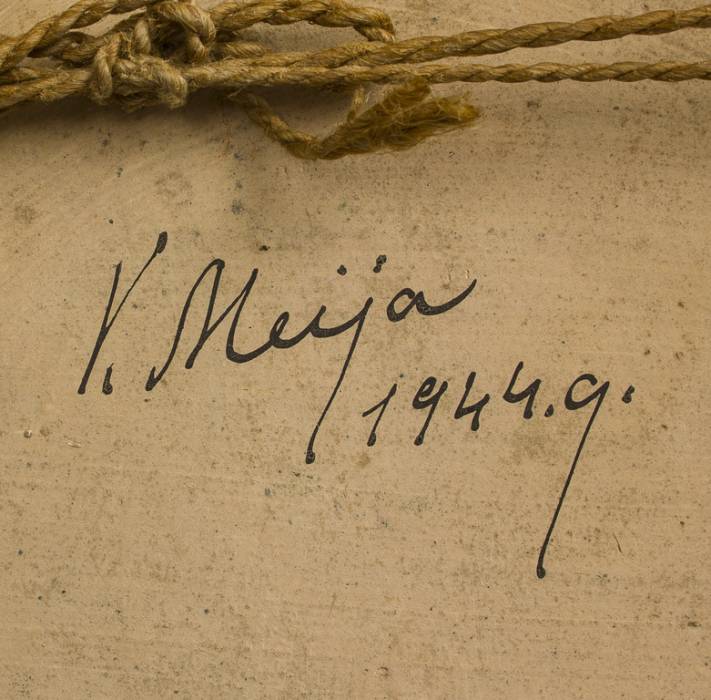 V. Meija
1944.g.